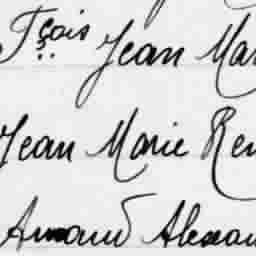 Fçois Jean Mar
Jean Marie Ren
Armand Alexan